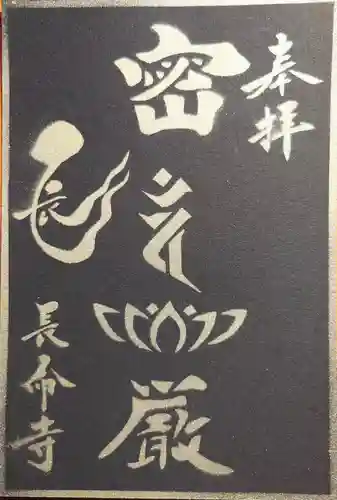 奉拝
密
厳
長
長命寺